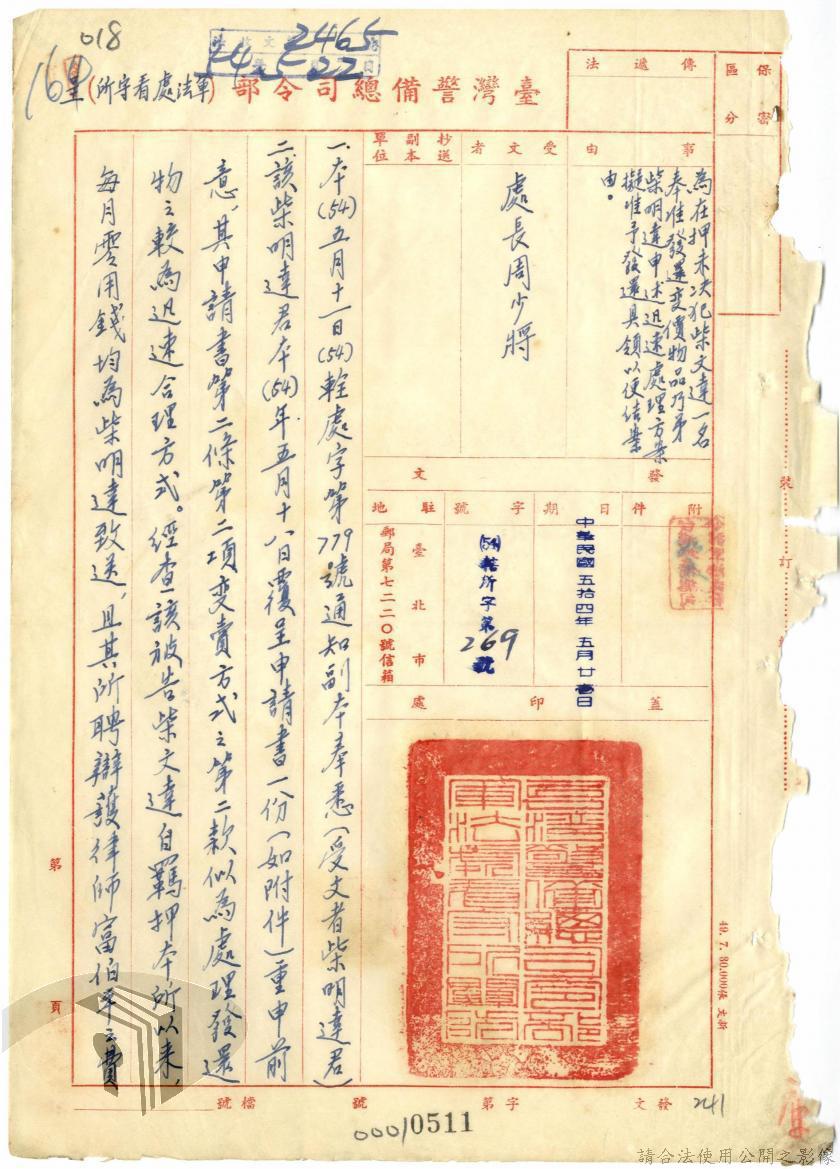 018
164
2465
54 5 22
臺灣警備總司令部(軍法處看守所)呈
保密區分
傳遞法
事由
為在押未決犯柴文達一名
奉准發還变價物品乃弟
柴明達申述迅速處理方案
擬准予發還具領以便结案
由。
受文者
處長周少將
抄送副本單位
發文
附件
日期
中華民國五拾四年五月廿壹日
字號
(54)
所字第
269
號
駐地
臺北市
郵局第七二二〇號信箱
蓋印處
一、本(54)五月十一日(54)輊處字第779號通知副本奉悉(受文者柴明達君)
二、該柴明達君本(54)年五月十八日覆呈申請書一份(如附件)重申前
意,其申請書第二條第二項变賣方式之第二款似為處理發還
物之較為迅速合理方式。經查該被告柴文達自羈押本所以來,
每月零用錢均為柴明達致送,且其所聘辯護律師富伯平之費
第 頁
裝
訂
49. 7. 30.000張 文新
發文 字第 號
檔號
241
00010511
請合法使用公開之影像